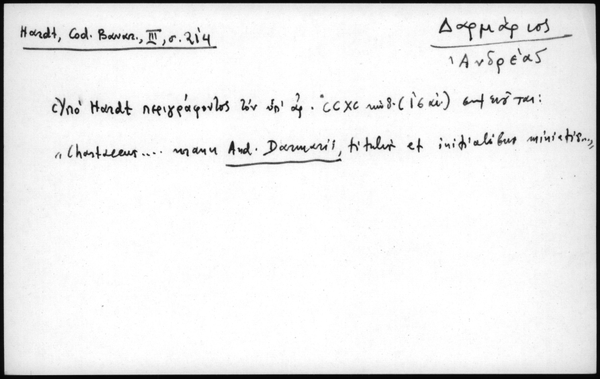 Hardt, Cod. Bavar., III, σ. 214
Δαρμάριος
Ἀνδρέας
Ὑπὸ Hardt περιγράφοντος τὸν ὑπ' ἀρ. CCXC κώδ. (Iς αἰ.)
"Chartaceus.... manu And. Darmarii, titulis et initialibus miniatis..,,